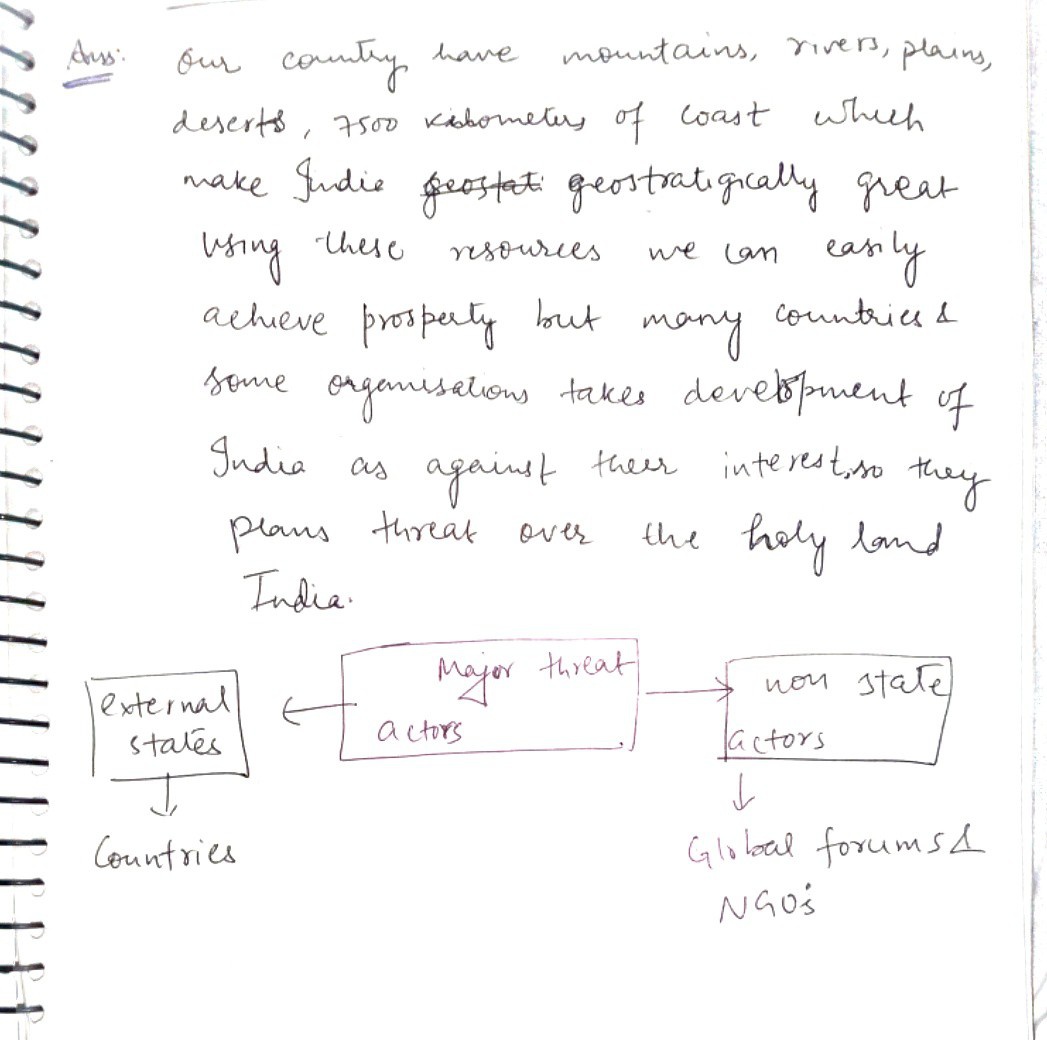 Ans: Our country have mountains, rivers, plains,
deserts, 7500 kilometers of coast which
make India geostat geostratigically great
using these resources we can easily
achieve prosperty but many countries &
some organisations takes development of
India as against their interest, so they
plans threat over the holy land
India.
Major threat
actors
external
states
non state
actors
Countries
Global forums &
NGO's